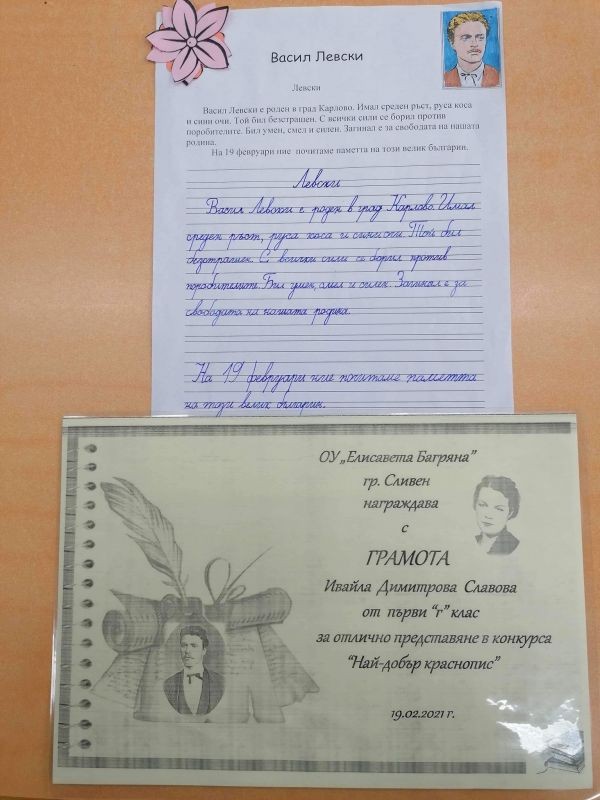 Васил Левски
Левски
Васил Левски е роден в град Карлово. Имал среден ръст, руса коса
и сини очи. Той бил безстрашен. С всички сили се борил против
поробителите. Бил умен, смел и силен. Загинал е за свободата на нашата
родина.
На 19 февруари ние почитаме паметта на този велик българин.
Левски
Васил Левски е роден в град Карлово. Имал
среден ръст, руса коса и сини очи. Той бил
безстрашен. С всички сили се борил против
поробителите. Бил умен, смел и силен. Загинал е за
свободата на нашата родина.
На 19 февруари ние почитаме паметта
на този велик българин.
ОУ „Елисавета Багряна”
гр. Сливен
награждава
с
ГРАМОТА
Ивайла Димитрова Славова
от първи “г” клас
за отлично представяне в конкурса
“Най-добър краснопис”
19.02.2021 г.